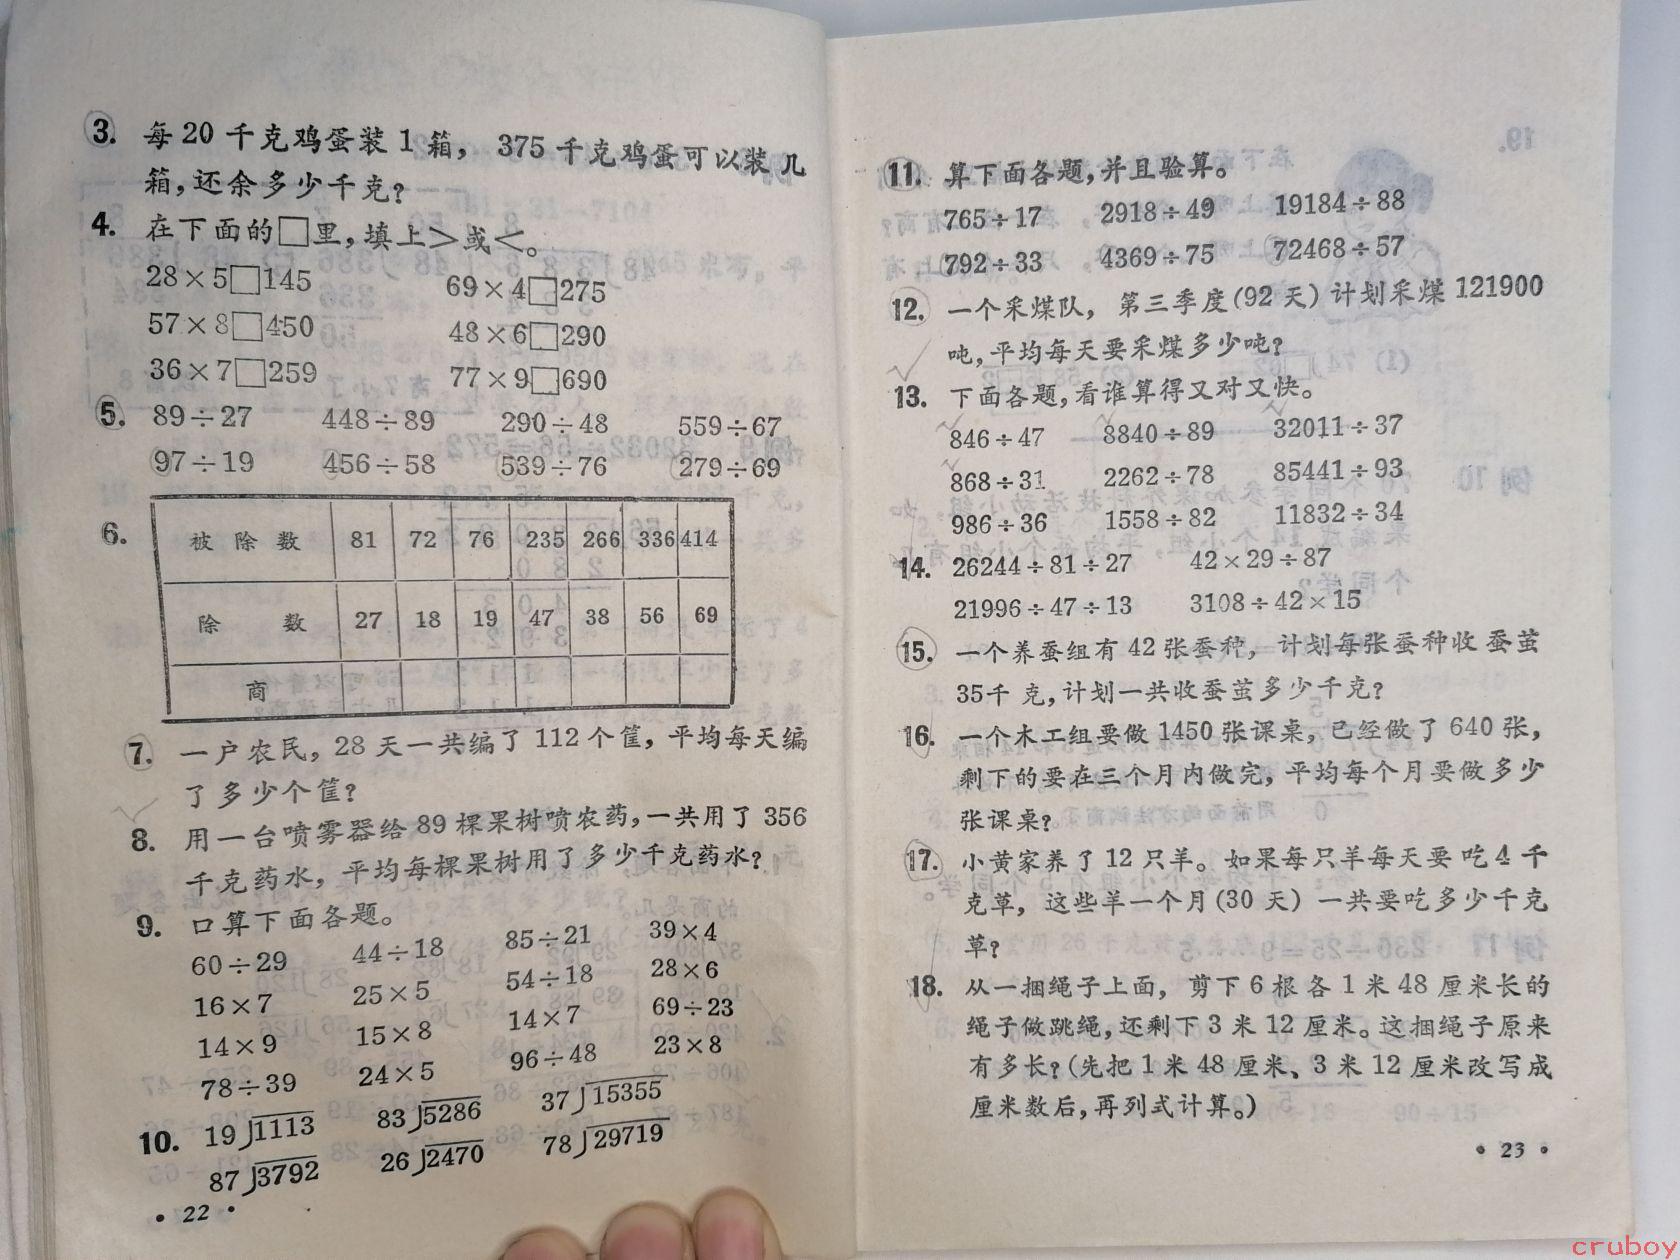 3. 每20千克鸡蛋装1箱，375千克鸡蛋可以装几
箱，还余多少千克？
4. 在下面的□里，填上>或<。
28×5□145 69×4□275
57×8□450 48×6□290
36×7□259 77×9□690
5. 89÷27 448÷89 290÷48 559÷67
97÷19 456÷58 539÷76 279÷69
6. 被除数 81 72 76 235 266 336 414
除数 27 18 19 47 38 56 69
商
7. 一户农民，28天一共编了112个筐，平均每天编
了多少个筐？
8. 用一台喷雾器给89棵果树喷农药，一共用了356
千克药水，平均每棵果树用了多少千克药水？
9. 口算下面各题。
60÷29 44÷18 85÷21 39×4
16×7 25×5 54÷18 28×6
14×9 15×8 14×7 69÷23
78÷39 24×5 96÷48 23×8
10. 19⟌1113 83⟌5286 37⟌15355
87⟌3792 26⟌2470 78⟌29719
• 22 •
11. 算下面各题，并且验算。
765÷17 2918÷49 19184÷88
792÷33 4369÷75 72468÷57
12. 一个采煤队，第三季度(92天)计划采煤121900
吨，平均每天要采煤多少吨？
13. 下面各题，看谁算得又对又快。
846÷47 8840÷89 32011÷37
868÷31 2262÷78 85441÷93
986÷36 1558÷82 11832÷34
14. 26244÷81÷27 42×29÷87
21996÷47÷13 3108÷42×15
15. 一个养蚕组有42张蚕种，计划每张蚕种收蚕茧
35千克，计划一共收蚕茧多少千克？
16. 一个木工组要做1450张课桌，已经做了640张，
剩下的要在三个月内做完，平均每个月要做多少
张课桌？
17. 小黄家养了12只羊。如果每只羊每天要吃4千
克草，这些羊一个月(30天)一共要吃多少千克
草？
18. 从一捆绳子上面，剪下6根各1米48厘米长的
绳子做跳绳，还剩下3米12厘米。这捆绳子原来
有多长？(先把1米48厘米、3米12厘米改写成
厘米数后，再列式计算。)
• 23 •
cruboy